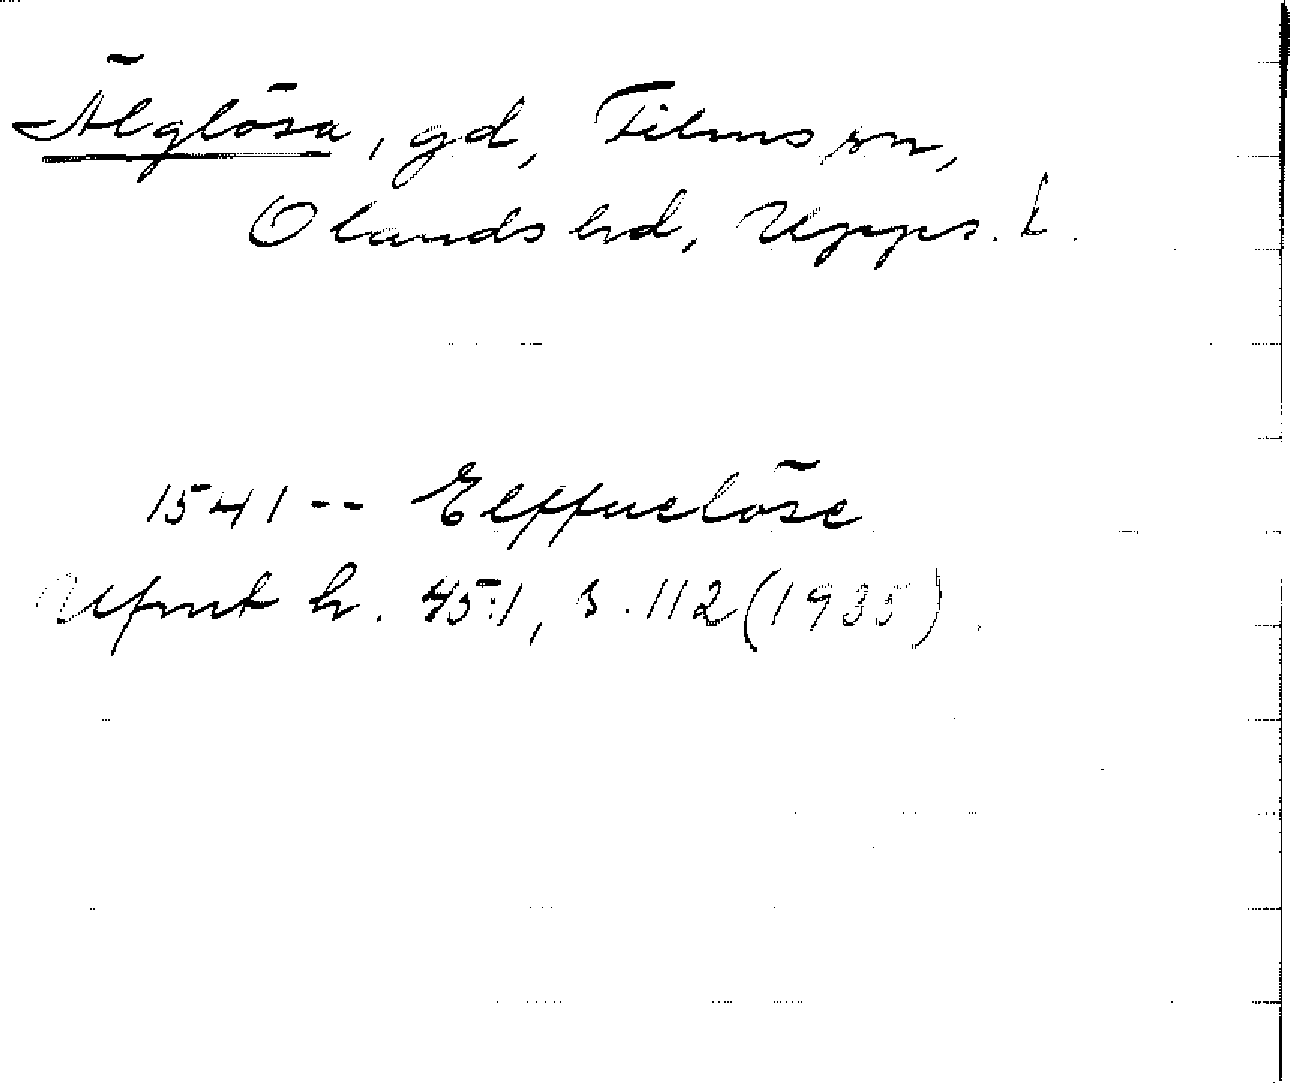 Älglösa, gd, Films sn,
Olands hd, Upps. L.
1541 -- Elffuelöse
Ufmt h. 45:1, s. 112 (1935).